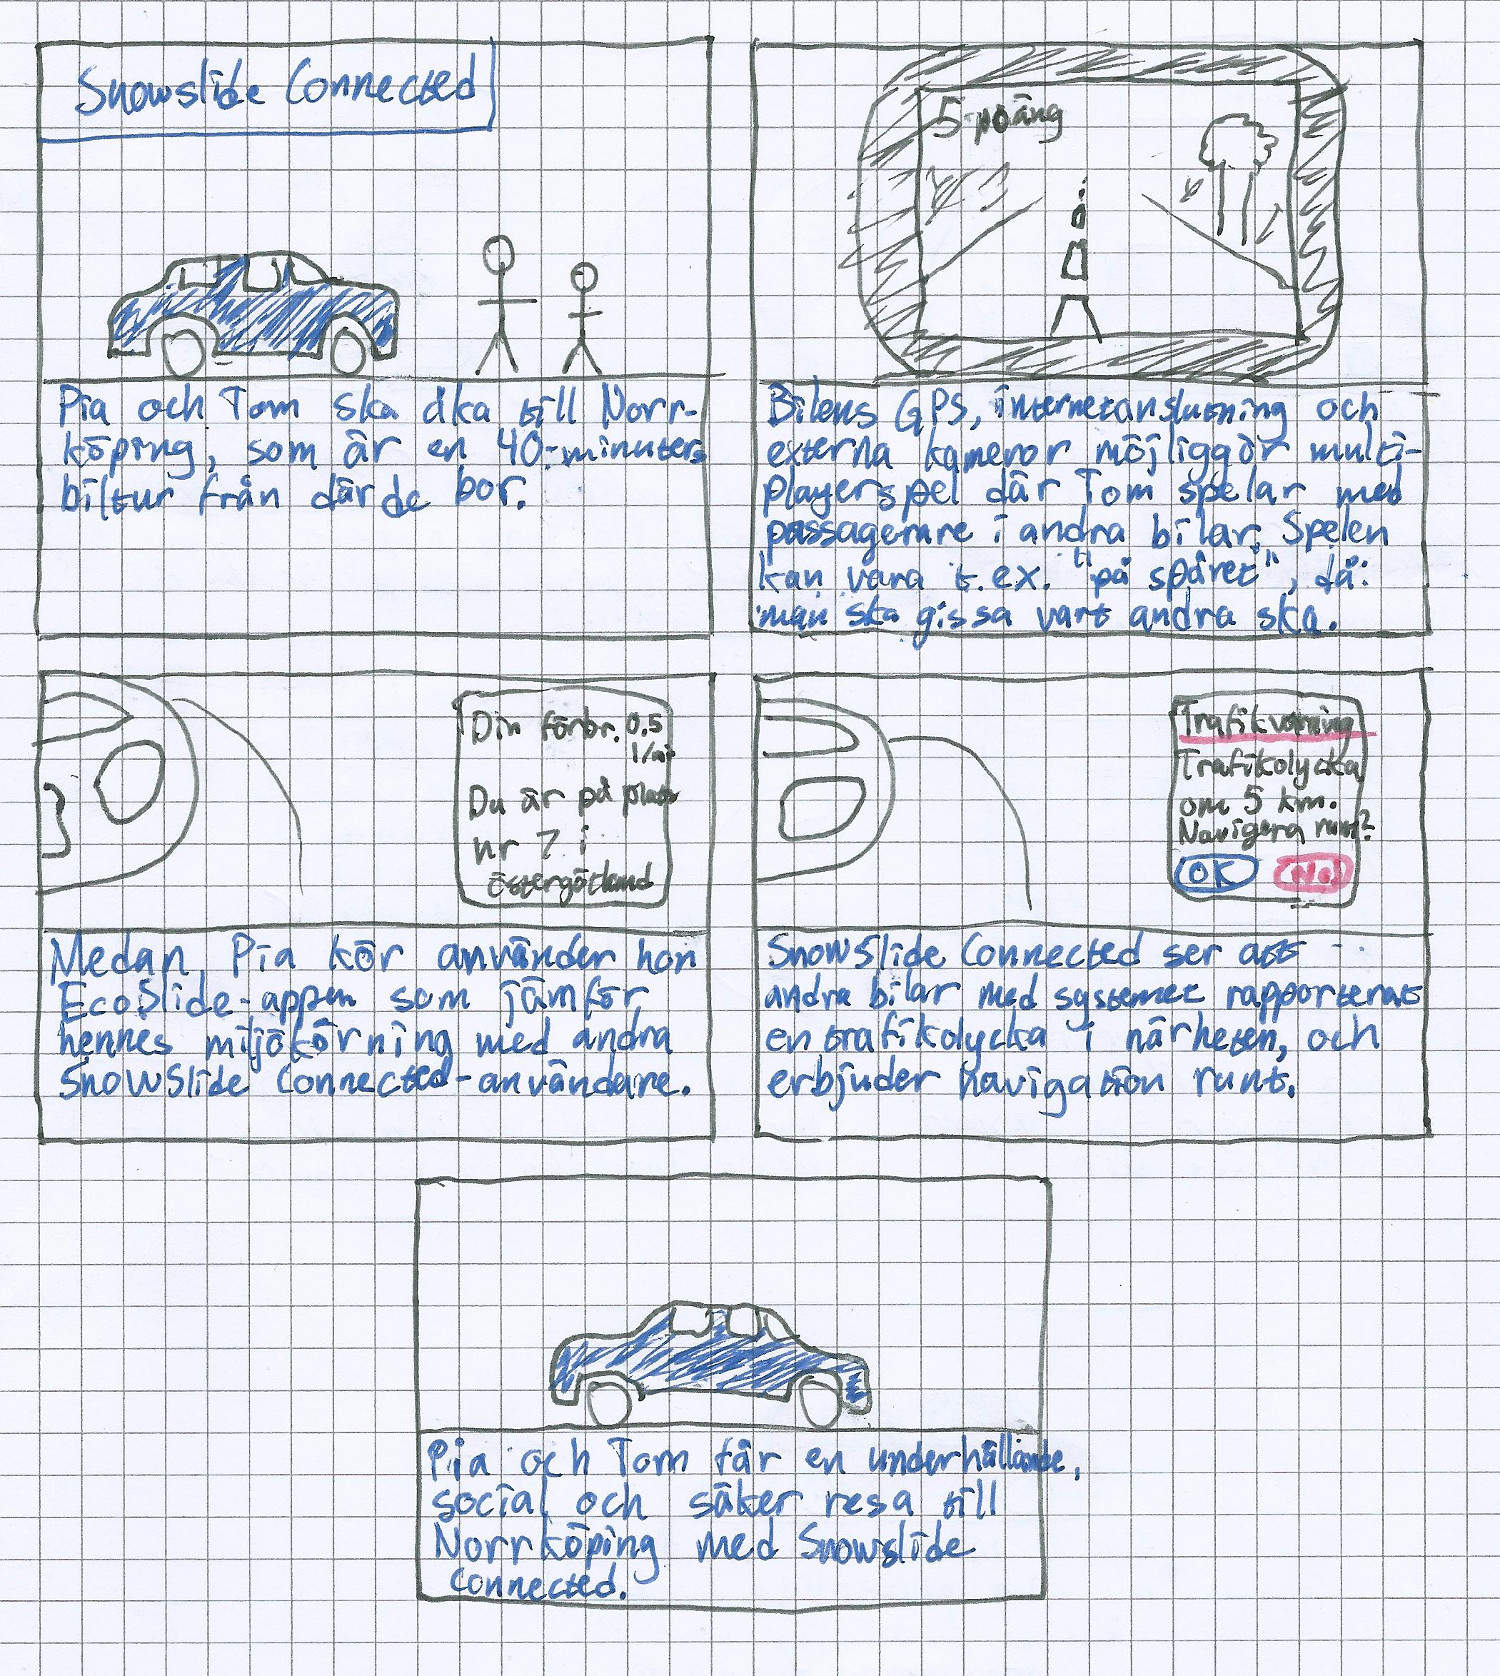 Snowslide Connected
Pia och Tom ska åka till Norr-
köping, som är en 40-minuters
biltur från där de bor.
5 poäng
Bilens GPS, internetanslutning och
externa kameror möjliggör multi-
playerspel där Tom spelar med
passagerare i andra bilar. Spelen
kan vara t.ex. "på spåret", då
man ska gissa vart andra ska.
Din förbr. 0.5
l/mil
Du är på plats
nr 7 i
östergötland
Medan Pia kör använder hon
EcoSlide-appen som jämför
hennes miljökörning med andra
SnowSlide Connected-användare.
Trafikvarning
Trafikolycka
om 5 km.
Navigera runt?
OK No!
SnowSlide Connected ser att
andra bilar med systemet rapporterat
en trafikolycka i närheten, och
erbjuder navigation runt.
Pia och Tom får en underhållande,
social och säker resa till
Norrköping med Snowslide
Connected.